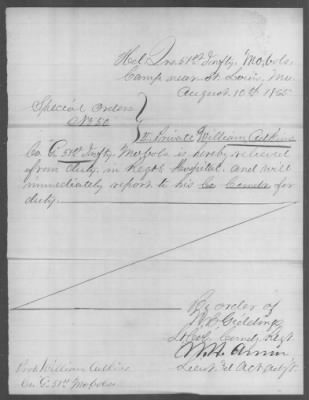 Hd. Qrs. 51st Infty. Mo. Vols.
Camp near St. Louis, Mo.
August 10th 1865
Special Orders
No 50
IV. Private William
Co G. 51st Infty. Mo Vols is hereby relieved
from duty in Regtl Hospital and will
immediately report to his Co Comdr for
duty.
By order of
Lt Col. Comdg. Regt
Lieut
William
Co. G. 51st Mo Vols